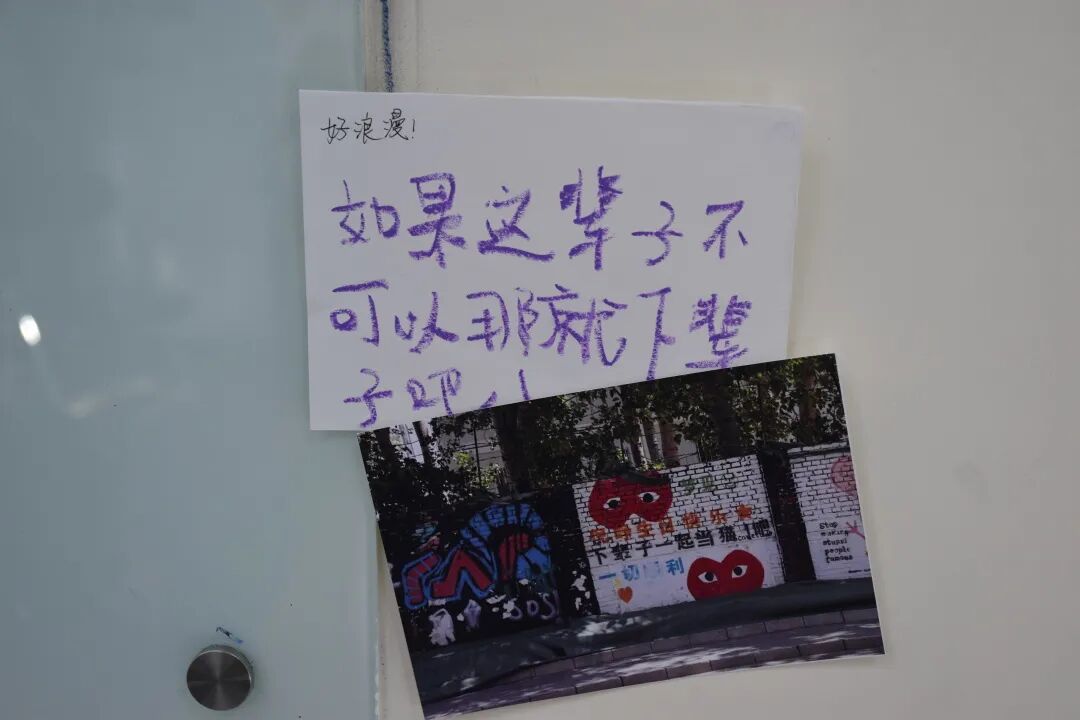 好浪漫!
如果这辈子不
可以那就下辈
子吧!
生日快乐
下辈子一起当猫!吧
一切顺利
SOS
Stop
making
stupid
people
famous